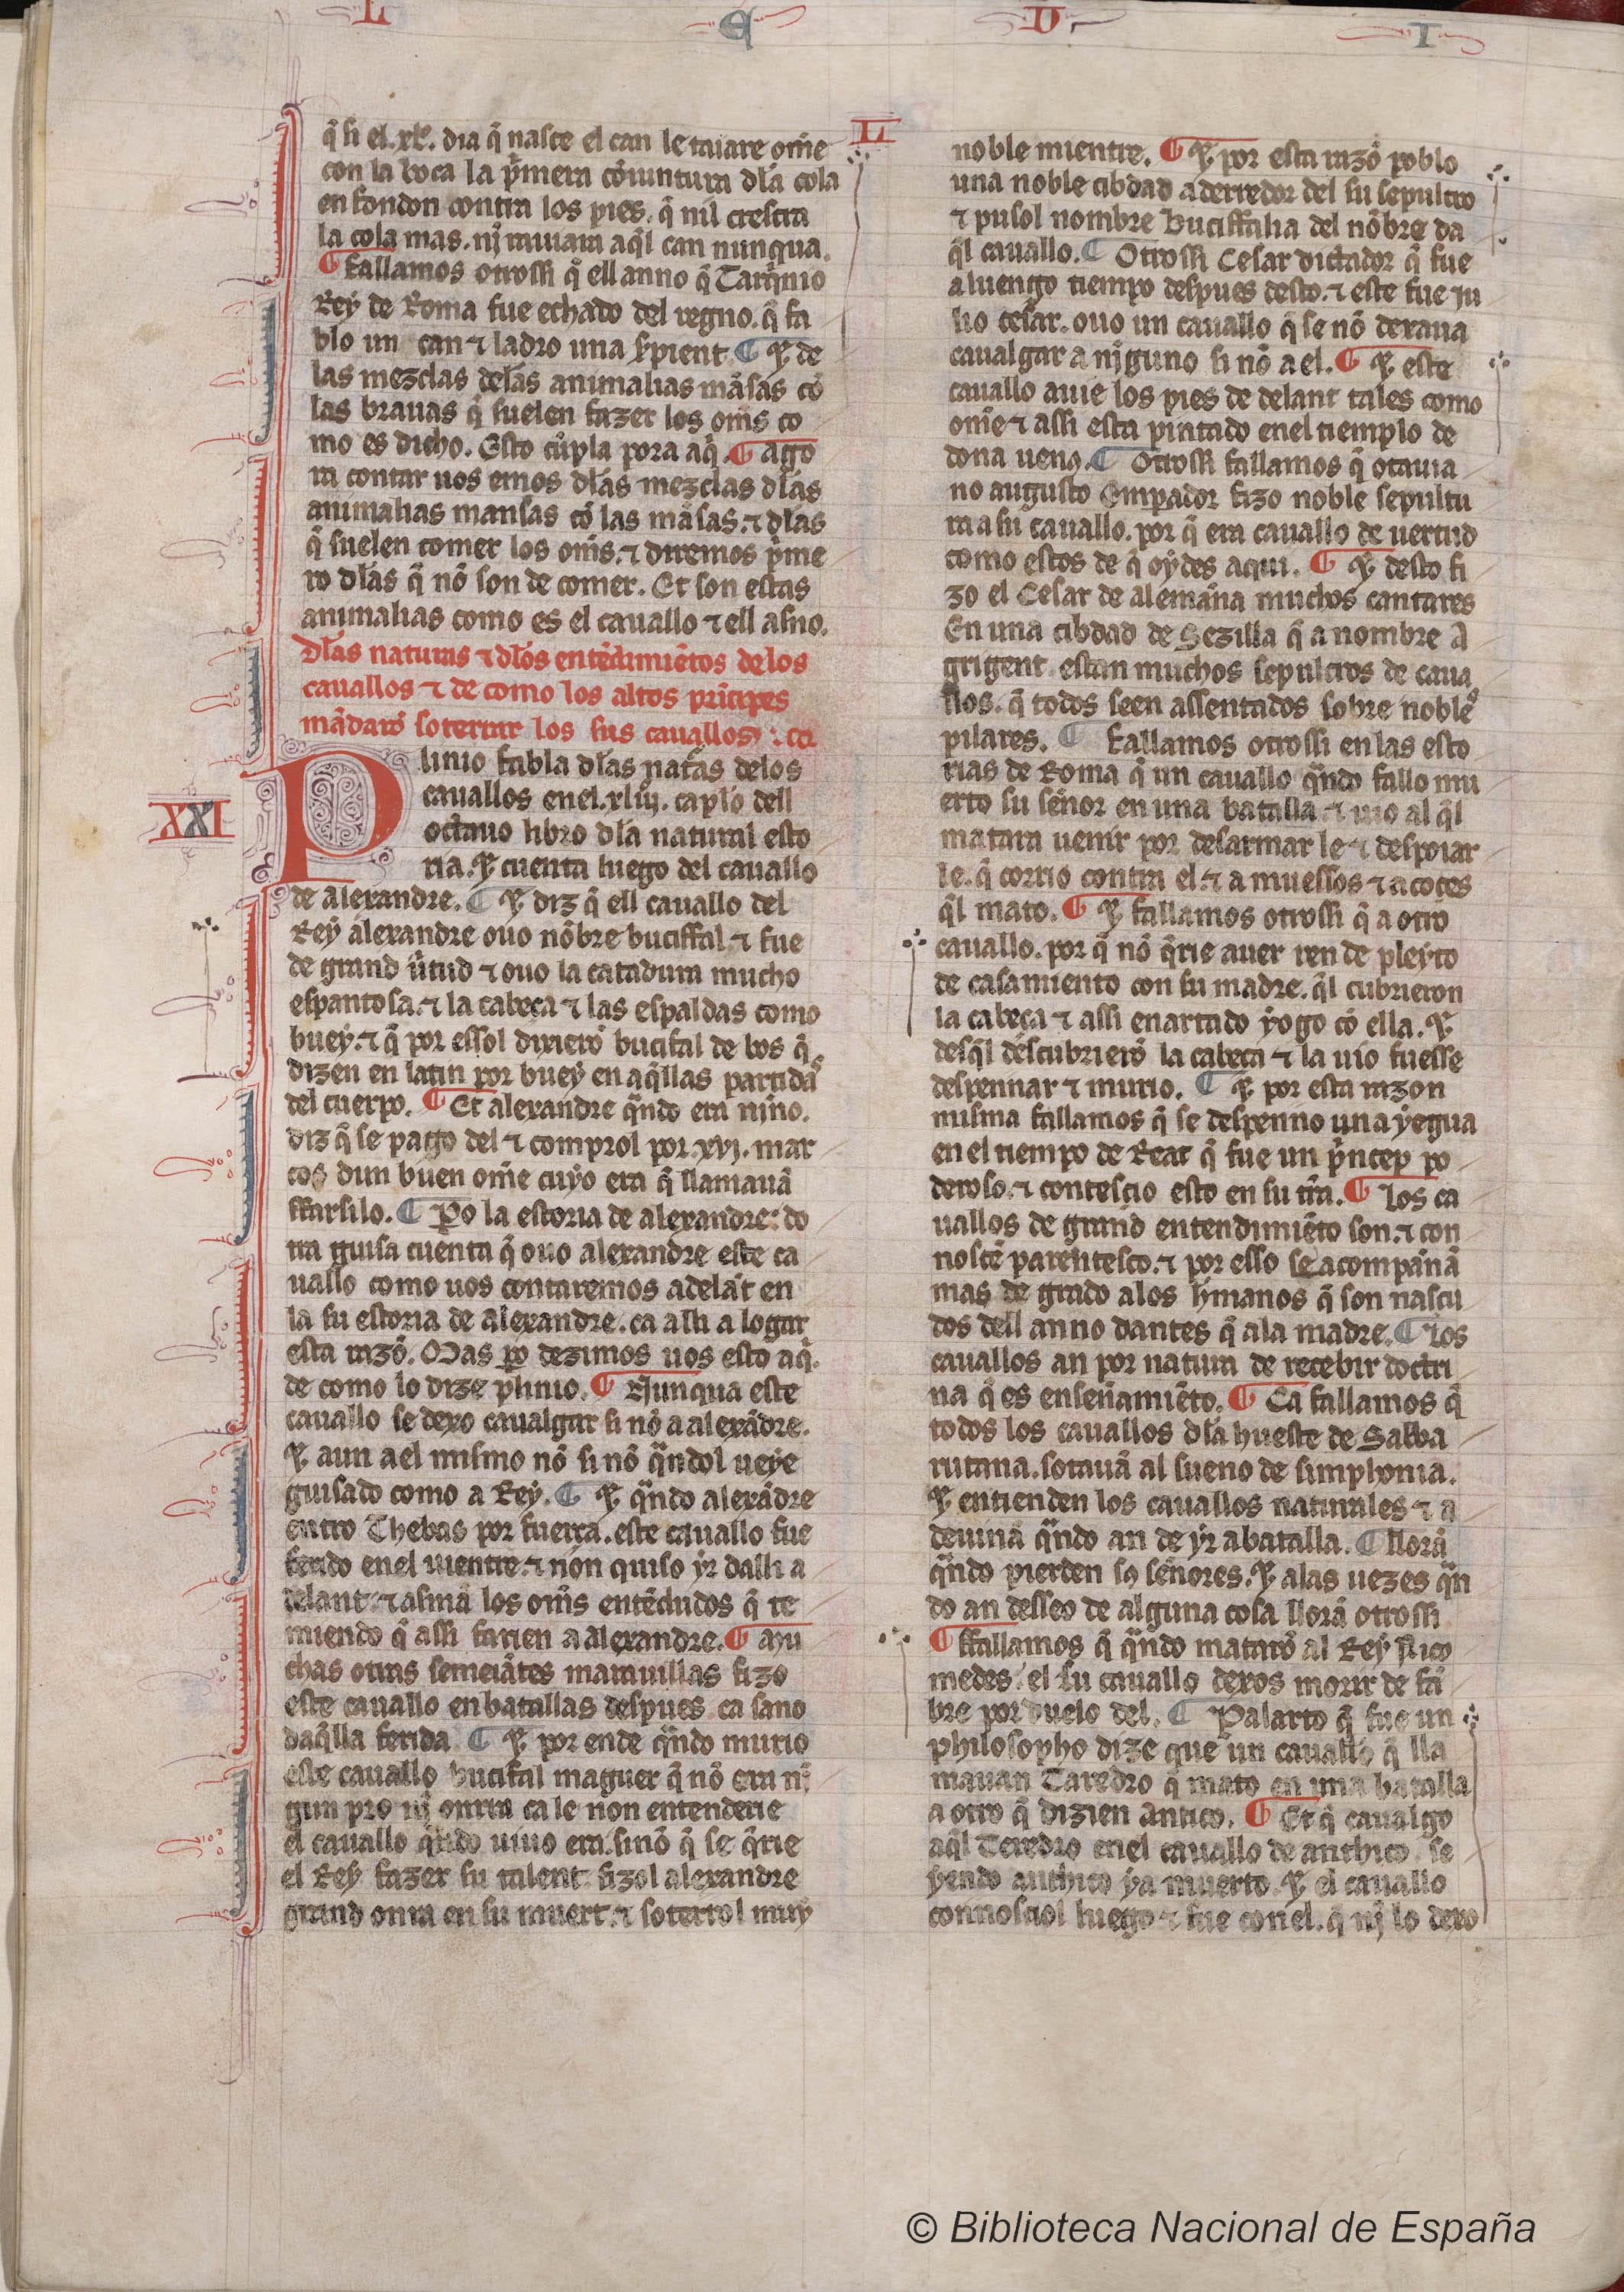 L E U I
q̃ si el .xlº. dia q̃ nasce el can le taiare om̃e
con la boca la p̃mera cõiuntura dl̃a cola
en fondon contra los pies. q̃ nil crescra
la cola mas. nĩ rauiara aq̃l can nunqua.
¶ Fallamos otrossi q̃ ell anno q̃ Tarq̃nio
Rey de Roma fue echado del regno. q̃ fa
blo un can ⁊ ladro una s̃pient ¶ ⁊ de
las mezclas delas animalias mãsas cõ
las brauas q̃ suelen fazer los om̃s co
mo es dicho. Esto cũpla pora aq̃. ¶ Ago
ra contar uos emos dl̃as mezclas dl̃as
animalias mansas cõ las mãsas. ⁊ dl̃as
q̃ suelen comer los om̃s. ⁊ diremos p̃me
ro dl̃as q̃ nõ son de comer. Et son estas
animalias como es el cauallo ⁊ ell asno.
Dl̃as naturas ⁊ dl̃os entẽdimiẽtos delos
cauallos ⁊ de como los altos prĩcipes
mãdarõ soterrar los sus cauallos
XXI
Plinio fabla dl̃as nat̃as delos
cauallos enel .xliij. capl̃o dell
octauo libro dl̃a natural esto
ria. ⁊ cuenta luego del cauallo
de alexandre. ¶ ⁊ diz q̃ ell cauallo del
Rey alexandre ouo nõbre buciffal. ⁊ fue
de grand ũtud ⁊ ouo la catadura mucho
espantosa. ⁊ la cabeça ⁊ las espaldas como
buey. ⁊ q̃ por essol dixierõ bucifal de bos q̃
dizen en latin por buey en aq̃llas partidas
del cuerpo. ¶ Et alexandre q̃ndo era nino.
diz q̃ se pago del ⁊ comprol por .xvj. mar
cos dun buen om̃e cuyo era q̃ llamauã
ffarsilo. ¶ Po la estoria de alexandre: do
tra guisa cuenta q̃ ouo alexandre este ca
uallo como uos contaremos adelãt en
la su estoria de alexandre. ca alli a logar
esta razõ. Mas po dezimos uos esto aq̃.
de como lo dize plinio. ¶ Nunqua este
cauallo se dexo caualgar si nõ a alexãdre.
⁊ aun a el mismo nõ si nõ q̃ndol ueye
guisado como a Rey. ¶ ⁊ q̃ndo alexãdre
entro Thebas por fuerça. este cauallo fue
ferido enel uientre. ⁊ non quiso yr dalli a
delant. ⁊ asmã los om̃s entẽdudos q̃ te
miendo q̃ assi farien a alexandre. ¶ Mu
chas otras semeiãtes marauillas fizo
este cauallo en batallas despues. ca sano
daq̃lla ferida ¶ ⁊ por ende q̃ndo murio
este cauallo bucifal maguer q̃ nõ era nĩ
gun pro nĩ onrra ca le non entenderie
el cauallo q̃ndo uiuo era. sinõ q̃ se q̃rie
el Rey fazer su talent: fizol alexandre
grand onra en su muert. ⁊ soterrol muy
L
noble mientre. ¶ ⁊ por esta razõ poblo
una noble cibdad aderredor del su sepulcro
⁊ pusol nombre Buciffalia del nõbre da
q̃l cauallo. ¶ Otrossi Cesar dictador q̃ fue
a luengo tiempo despues desto. ⁊ este fue Ju
lio cesar. ouo un cauallo q̃ se nõ dexaua
caualgar a nĩguno si nõ a el. ¶ ⁊ este
cauallo auie los pies de delant tales como
om̃e ⁊ assi esta pintado enel tiemplo de
dona uenꝰ. ¶ Otrossi fallamos q̃ otauia
no augusto Emperador fizo noble sepultu
ra a su cauallo. por q̃ era cauallo de uertud
como estos de q̃ oydes aqui. ¶ ⁊ desto fi
zo el Cesar de alemãna muchos cantares
En una cibdad de Sezilla q̃ a nombre A
grigent. estan muchos sepulcros de caua
llos. q̃ todos seen assentados sobre nobles
pilares. ¶ Fallamos otrossi en las esto
rias de Roma q̃ un cauallo q̃ndo fallo mu
erto su señor en una batalla ⁊ uio al q̃l
matara uenir por desarmar le ⁊ despoiar
le. q̃ corrio contra el. ⁊ a muessos ⁊ a coces
q̃l mato. ¶ ⁊ fallamos otrossi q̃ a otro
cauallo. por q̃ nõ q̃rie auer ren de pleyto
de casamiento con su madre. q̃l cubrieron
la cabeça ⁊ assi enartado yogo cõ ella. ⁊
desq̃l descubrierõ la cabeça ⁊ la uio fuesse
despennar ⁊ murio. ¶ ⁊ por esta razon
misma fallamos q̃ se despenno una yegua
en el tiempo de Reat q̃ fue un p̃ncep po
deroso. ⁊ contescio esto en su tr̃a. ¶ Los ca
uallos de grand entendimiẽto son. ⁊ con
noscẽ parentesco. ⁊ por esso se acompãnã
mas de grado alos h̃manos q̃ son nascu
dos dell anno dantes q̃ ala madre. ¶ Los
cauallos an por natura de recebir doctri
na q̃ es enseñamiẽto. ¶ Ca fallamos q̃
todos los cauallos dl̃a hueste de Salba
ritana. sotauã al sueno de simphonia.
⁊ entienden los cauallos naturales ⁊ a
deuinã q̃ndo an de yr a batalla. ¶ llorã
q̃ndo pierden sꝰ señores. ⁊ alas uezes q̃n
do an desseo de alguna cosa llorã otrossi
¶ ffallamos q̃ q̃ndo matarõ al Rey Nico
medes. el su cauallo dexos morir de fã
bre por duelo del. ¶ Palarto q̃ fue un
philosopho dize que un cauallo q̃ lla
mauan Taredro q̃ mato en una batalla
a otro q̃ dizien Antico. ¶ Et q̃ caualgo
aq̃l Teredro enel cauallo de anthico. se
yendo anthico ya muerto. ⁊ el cauallo
connosciol luego ⁊ fue con el. q̃ nĩ lo dexo
© Biblioteca Nacional de España